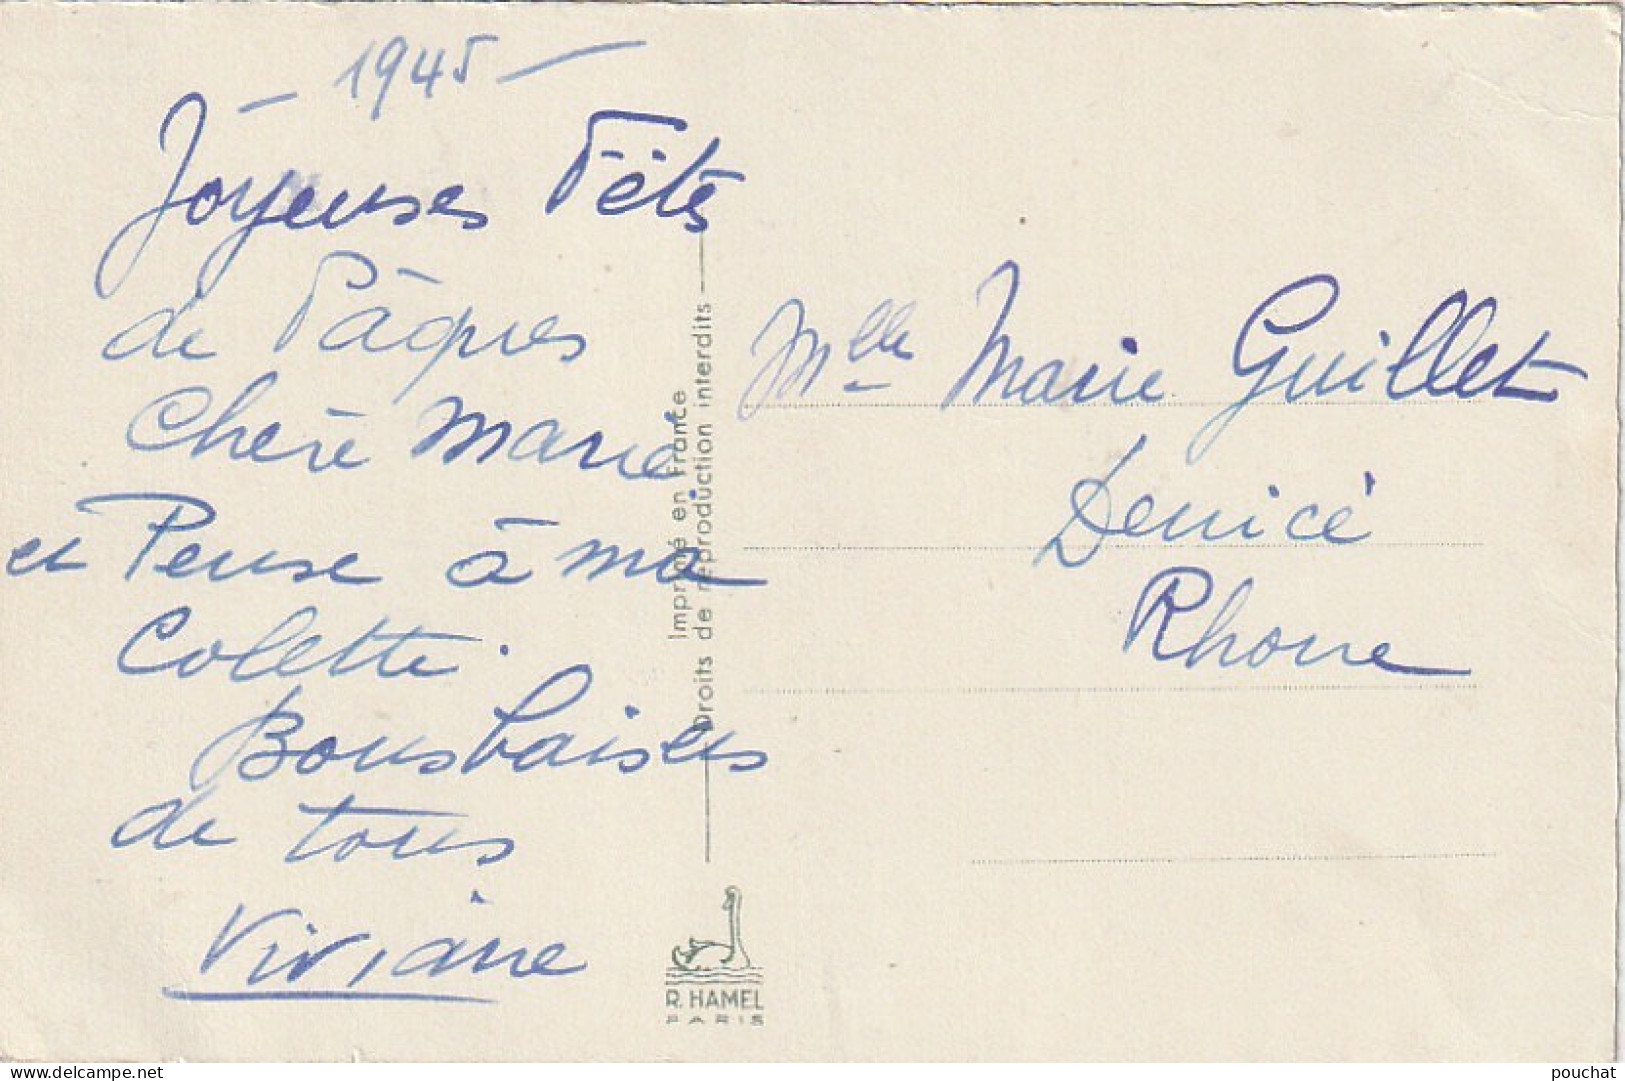 - 1945 -
Joyeuses Fêtes
de Pâques
Chère Marie
et Pense à ma
Colette.
Bons baisers
de tous
Viviane
Imprimé en France
Droits de reproduction interdits
R. HAMEL
PARIS
Mlle Marie Guillet
Denicé
Rhone
www.delcampe.net
pouchat